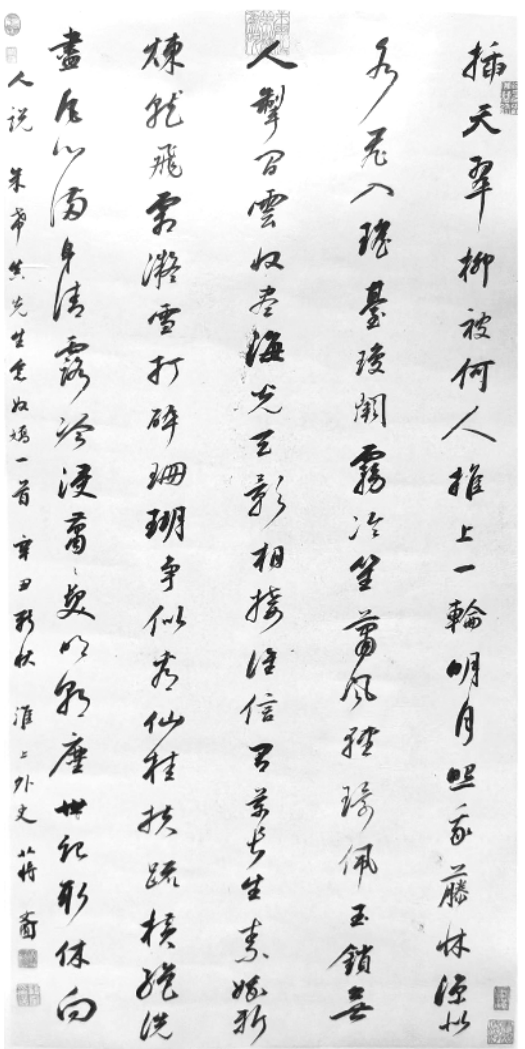 插天翠柳被何人推上一輪明月照我藤牀涼似
水飛入瑤臺瓊闕霧冷笙簫風輕佩玉鎖無
人掣閒雲收盡海光天影相接誰信有藥長生素娥新
煉就飛霜凝雪打碎珊瑚爭似看仙桂扶疏橫絕洗
盡凡心滿身清露冷浸蕭蕭髮明朝塵世記取休向
人說 朱希真先生念奴嬌一首 辛丑新秋 淮上外史蔣